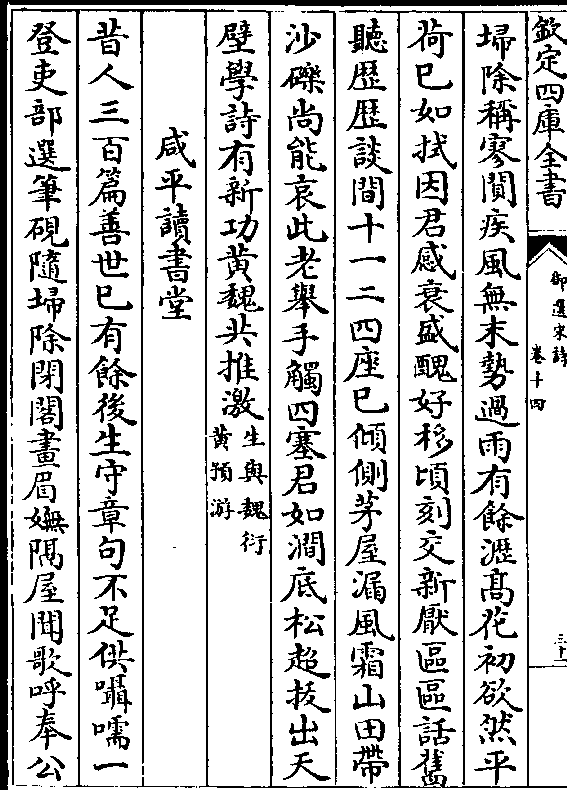 欽定四庫全書
御選宋詩
卷十四
三十二
埽除稱寥闃疾風無末勢過雨有餘瀝髙花初欲然平
荷已如拭因君感衰盛醜好移頃刻交新厭區區話舊
聽歴歴談間十一二四座已傾側茅屋漏風霜山田帶
沙礫尚能哀此老舉手觸四塞君如澗底松超拔出天
壁學詩有新功黄魏共推激生與魏衍
黄預游
咸平讀書堂
昔人三百篇善世已有餘後生守章句不足供囁嚅一
登吏部選筆硯隨埽除閉閣畫眉嫵隔屋聞歌呼奉公